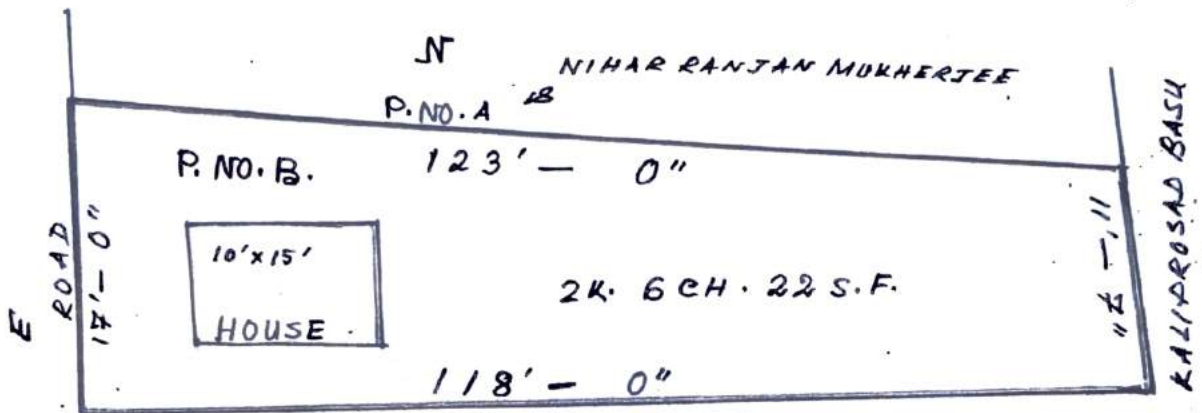 N
NIHAR RANJAN MUKHERJEE
P. NO. A
P. NO. B.
123' — 0"
E
ROAD
17' — 0"
10' x 15'
HOUSE
2K. 6 CH. 22 S.F.
11' —
KALIPROSAD BASU
118' — 0"